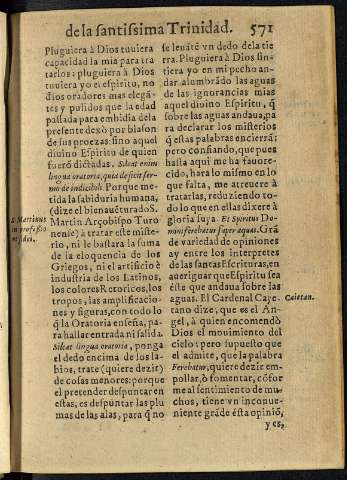 de la santissima Trinidad. 571
Pluguiera à Dios tuuiera
capacidad la mia para tra
tarlos: pluguiera à Dios
tuuiera yo el espiritu, no
dios oradores mas elegã
tes y pulidos que la edad
passada para embidia dela
presente dexò por blason
de sus proezas: sino aquel
diuino Espiritu de quien
fuerõ dictadas. Sileat enim
lingua oratoria, quia deficit ser-
mo de indicibili. Porque me-
tida la sabiduria humana,
(dize el bienauẽturado S.
Martin Arçobispo Turo
nense) à tratar este miste-
rio, ni le bastara la suma
de la eloquencia de los
Griegos, ni el artificio è
industria de los Latinos,
los colores Retoricos, los
tropos, las amplificacio
nes y figuras, con todo lo
q̃ la Oratoria enseña, pa-
ra hallar entrada ni salida.
Sileat lingua oratoria, ponga
el dedo encima de los la-
bios, trate (quiere dezir)
de cosas menores: porque
el pretender despuntar en
estas, es despũtar las plu
mas de las alas, para q̃ no
S. Martinus
in professio
ne fidei.
se leuãtẽ vn dedo dela tie
rra. Pluguiera à Dios sin-
tiera yo en mi pecho an-
dar alumbrãdo las aguas
de las ignorancias mias
aquel diuino Espiritu, q̃
sobre las aguas andaua, pa
ra declarar los misterios
q̃ estas palabras encierrã:
pero confiando, que pues
hasta aqui me ha fauore-
cido, hara lo mismo en lo
que falta, me atreuere à
tratarlas, reduziendo to-
do lo que en ellas dixere à
gloria suya. Et Spiritus Do-
mini ferebatur super aquas. Grã
de variedad de opiniones
ay entre los interpretes
de las santas Escrituras, en
aueriguar que Espiritu sea
este que andaua sobre las
aguas. El Cardenal Caye-
tano dize, que es el An-
gel, à quien encomendò
Dios el mouimiento del
cielo: pero supuesto que
el admite, que la palabra
Ferebatur, quiere dezir em-
pollar, ò fomentar, cõfor
me al sentimiento de mu-
chos, tiene vn inconue-
niente grãde esta opiniõ,
y es,
Caietan.